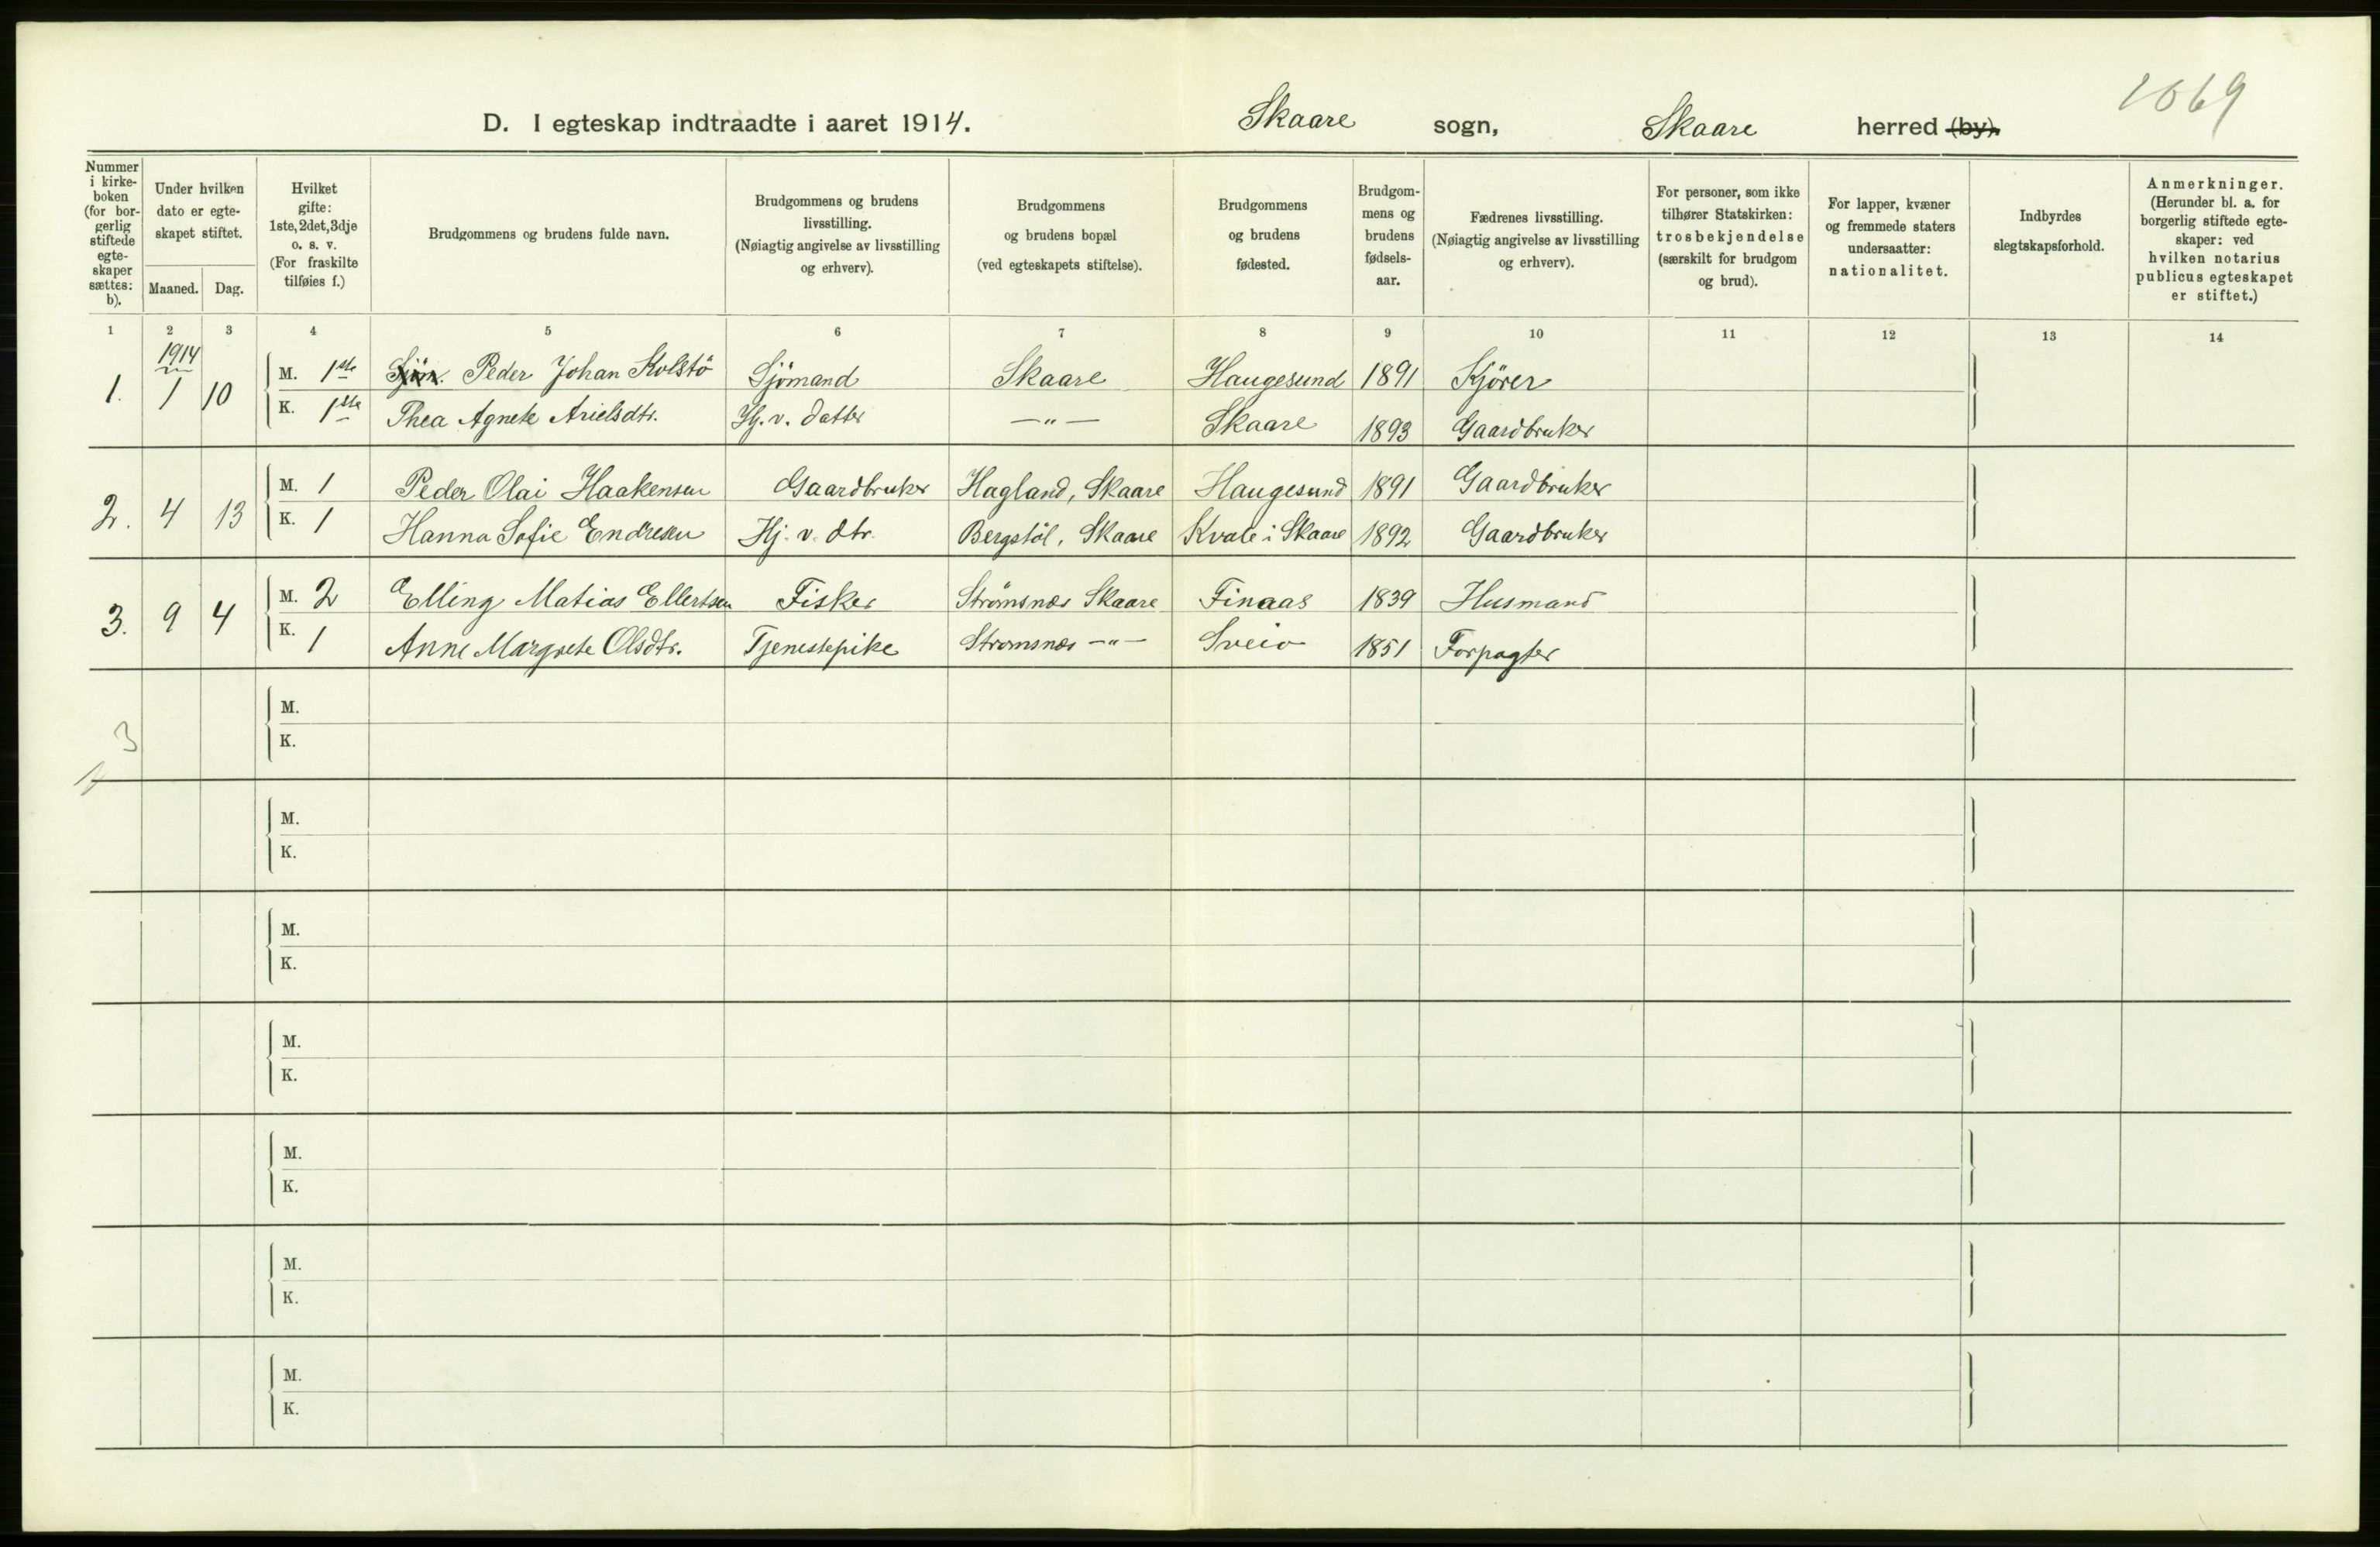 1069
D. I egteskap indtraadte i aaret 1914. Skaare sogn, Skaare herred (by).
Nummer i kirke-boken (for bor-gerlig stiftede egte-skaper sættes: b).
Under hvilken dato er egte-skapet stiftet.
Maaned. Dag.
Hvilket gifte: 1ste, 2det, 3dje o. s. v. (For fraskilte tilføies f.)
Brudgommens og brudens fulde navn.
Brudgommens og brudens livsstilling. (Nøiagtig angivelse av livsstilling og erhverv).
Brudgommens og brudens bopæl (ved egteskapets stiftelse).
Brudgommens og brudens fødested.
Brudgom-mens og brudens fødsels-aar.
Fædrenes livsstilling. (Nøiagtig angivelse av livsstilling og erhverv).
For personer, som ikke tilhører Statskirken: trosbekjendelse (særskilt for brudgom og brud).
For lapper, kvæner og fremmede staters undersaatter: nationalitet.
Indbyrdes slegtskapsforhold.
Anmerkninger. (Herunder bl. a. for borgerlig stiftede egte-skaper: ved hvilken notarius publicus egteskapet er stiftet.)
1 2 3 4 5 6 7 8 9 10 11 12 13 14
1914
1. 1 10 M. 1ste Peder Johan Kolstö Sjömand Skaare Haugesund 1891 Kjörer
K. 1ste Thea Agnete Arielsdtr. Hj. v. datter —"— Skaare 1893 Gaardbruker
2. 4 13 M. 1 Peder Olai Haakensen Gaardbruker Hagland, Skaare Haugesund 1891 Gaardbruker
K. 1 Hanna Sofie Endresen Hj. v. dtr. Bergstöl, Skaare Kvale i Skaare 1892 Gaardbruker
3. 9 4 M. 2 Elling Matias Ellertsen Fisker Strömsnæs Skaare Finaas 1839 Husmand
K. 1 Anne Margrete Olsdtr. Tjenestepike Stromsnæs —"— Sveio 1851 Forpagter
M.
K.
3
M.
K.
M.
K.
M.
K.
M.
K.
M.
K.
M.
K.